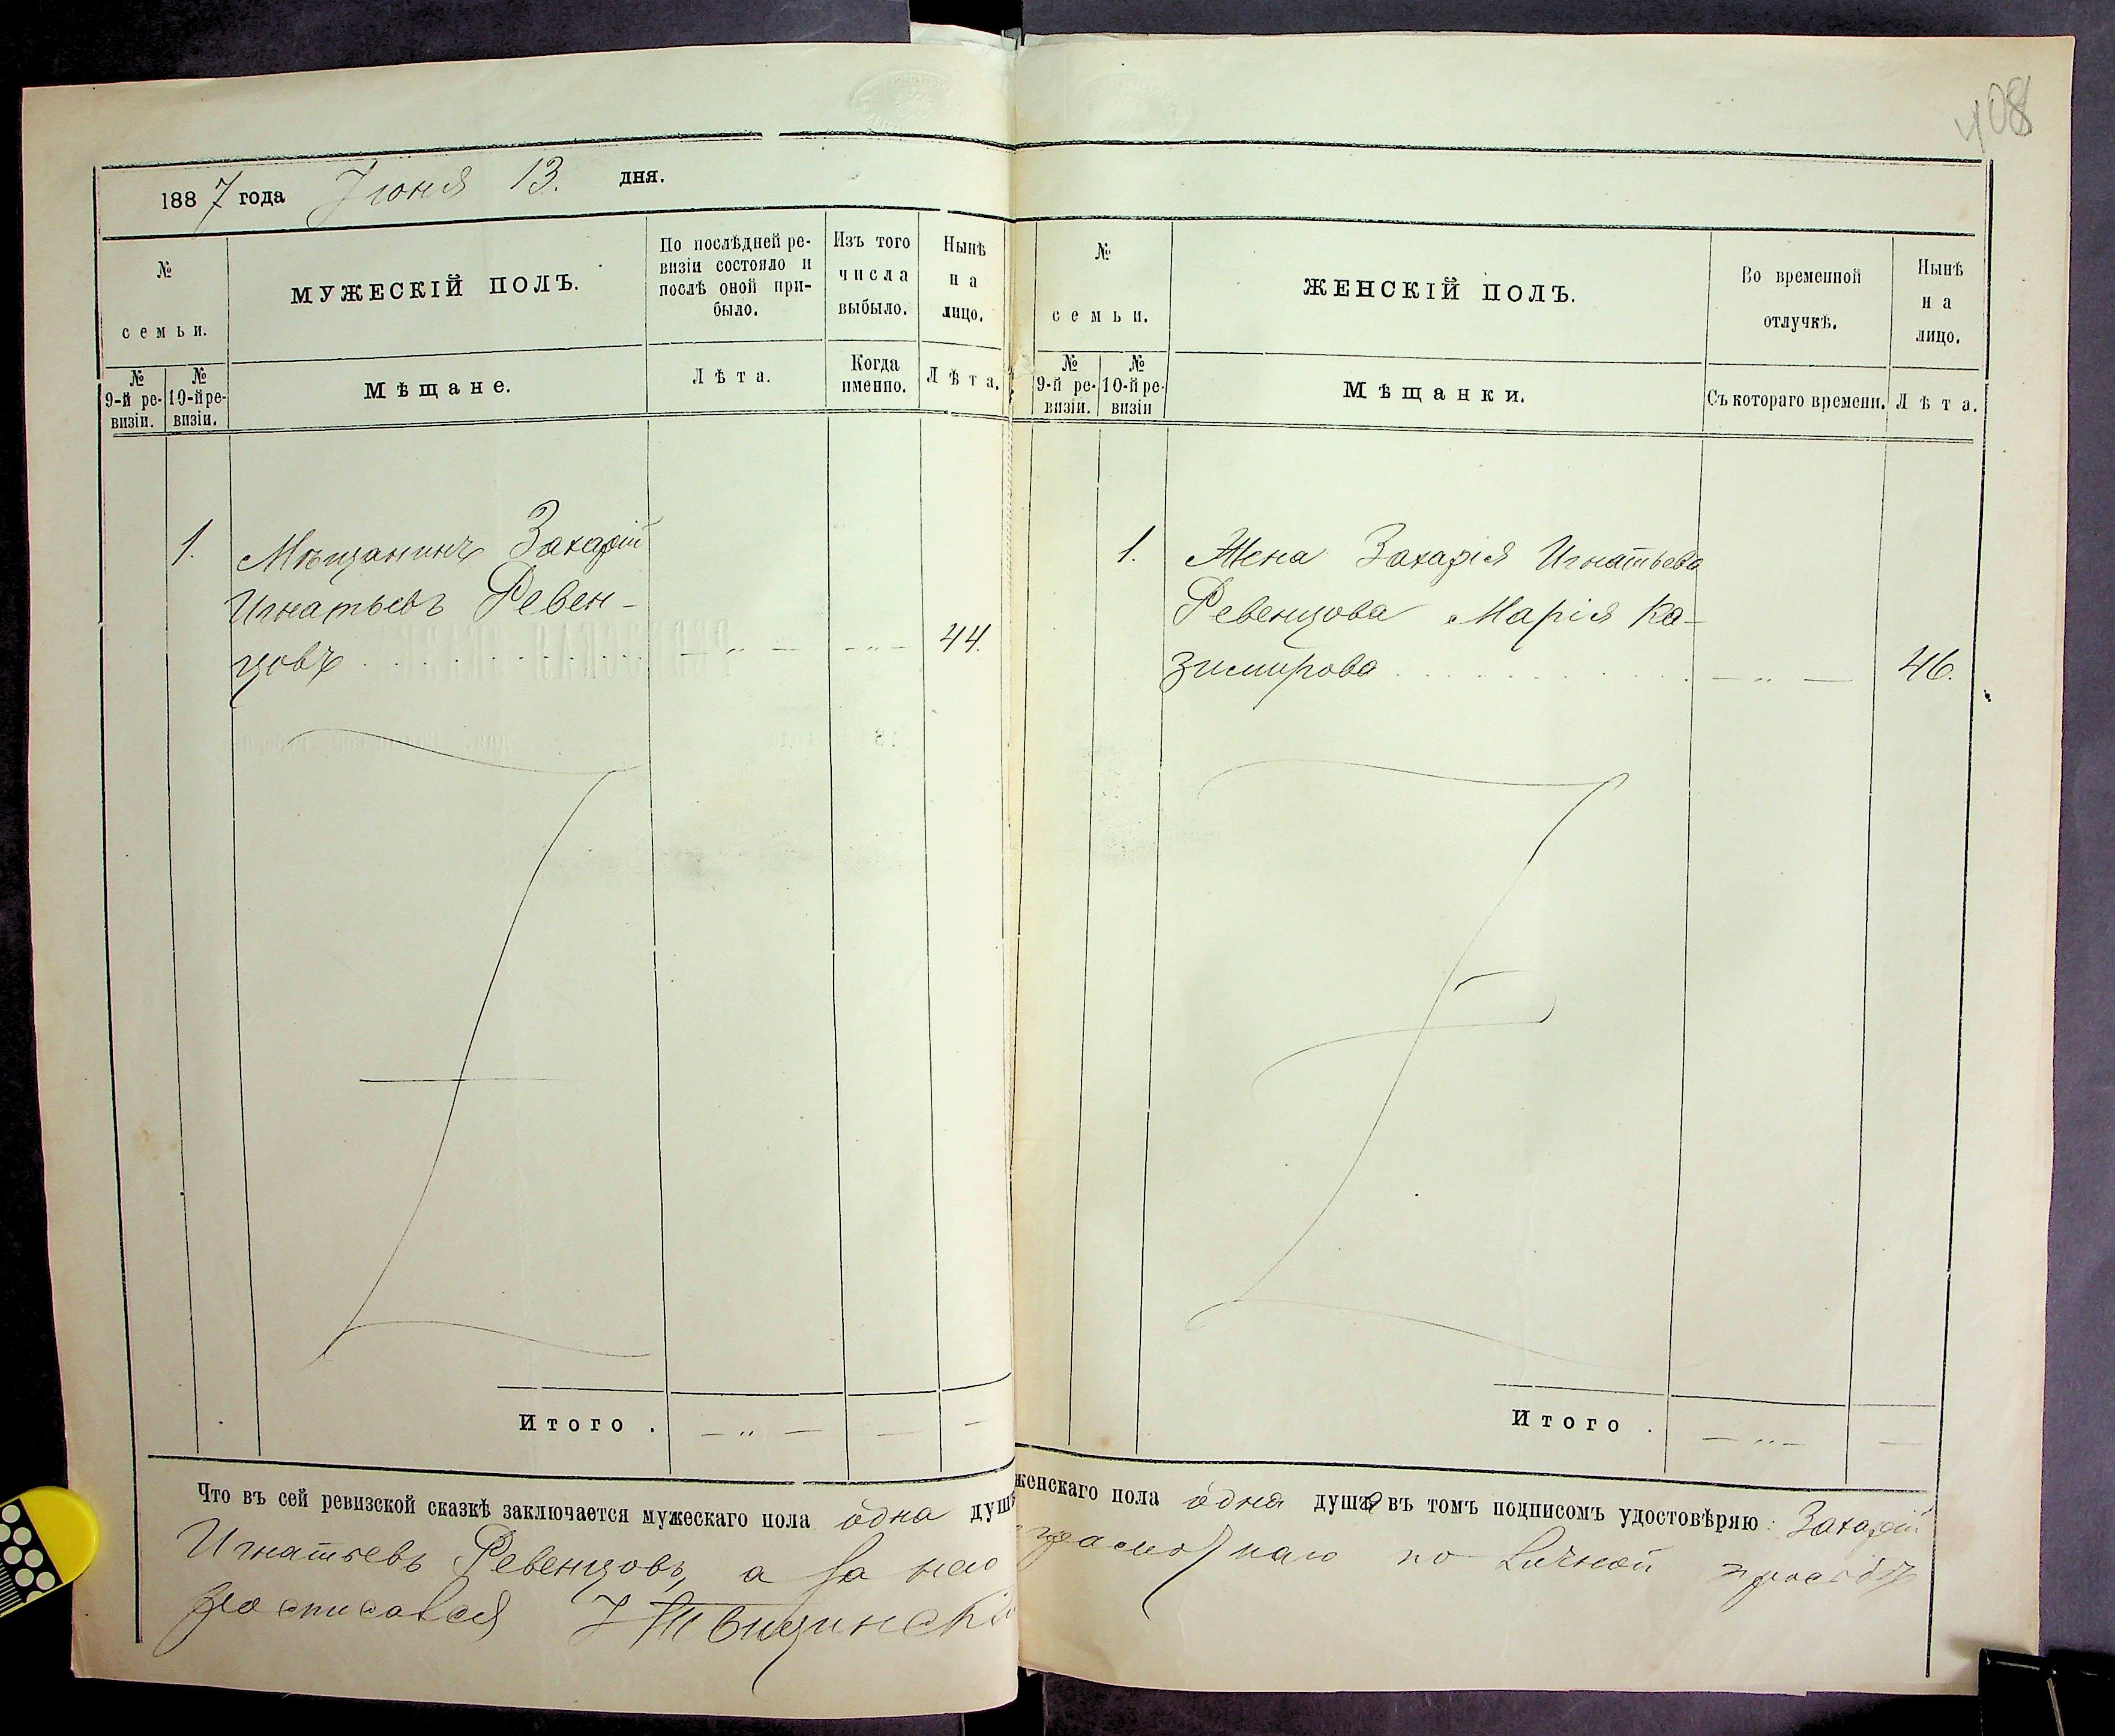 408
1887 года Іюня 13. дня.
№
семьи.
МУЖЕСКІЙ ПОЛЪ.
По послѣдней ре-
визіи состояло и
послѣ оной при-
было.
Изъ того
числа
выбыло.
Нынѣ
на
лицо.
№
9-й ре-
визіи.
№
10-й ре-
визіи.
Мѣщане.
Лѣта.
Когда
именно.
Лѣта.
1. Мѣщанинъ Захарій
Игнатьевъ Ревен-
цовъ . . . . . . . . . . . — „ — — „ — 44.
Итого . — „ — — —
Что въ сей ревизской сказкѣ заключается мужескаго пола одна душ
Игнатьевъ Ревенцовъ, а за не
росписался
№
семьи.
ЖЕНСКІЙ ПОЛЪ.
Во временной
отлучкѣ.
Нынѣ
на
лицо.
№
9-й ре-
визіи.
№
10-й ре-
визіи
Мѣщанки.
Съ котораго времени.
Лѣта.
1. Жена Захарія Игнатьева
Ревенцова Марія Ка-
зимирова . . . . . . . . . . . — „ — 46.
Итого . — „ — —
женскаго пола одна душа въ томъ подписомъ удостовѣряю: Захарій
по личной просьбѣ